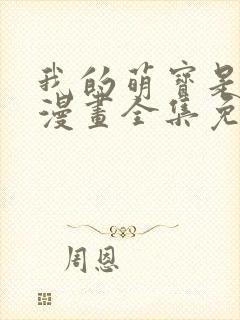 我的萌寶是
漫畫全集免
周恩